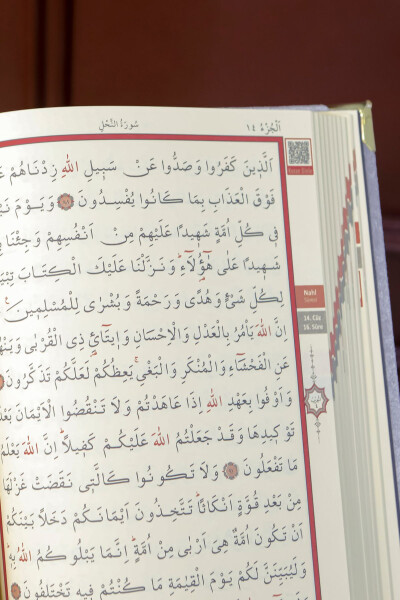 سُورَةُ النَّحْلِ
اَلْجُزْءُ ١٤
اَلَّذِينَ كَفَرُوا وَصَدُّوا عَنْ سَبِيلِ اللّٰهِ زِدْنَاهُمْ
فَوْقَ الْعَذَابِ بِمَا كَانُوا يُفْسِدُونَ ﴿٨٨﴾ وَيَوْمَ
فِي كُلِّ اُمَّةٍ شَهِيدًا عَلَيْهِمْ مِنْ اَنْفُسِهِمْ وَجِئْنَا
شَهِيدًا عَلٰى هٰٓؤُ۬لَٓاءِۜ وَنَزَّلْنَا عَلَيْكَ الْكِتَابَ
لِكُلِّ شَيْءٍ وَهُدًى وَرَحْمَةً وَبُشْرٰى لِلْمُسْلِمِينَ
اِنَّ اللّٰهَ يَأْمُرُ بِالْعَدْلِ وَالْاِحْسَانِ وَاِيتَٓائِ ذِي الْقُرْبٰى
عَنِ الْفَحْشَٓاءِ وَالْمُنْكَرِ وَالْبَغْيِۚ يَعِظُكُمْ لَعَلَّكُمْ تَذَكَّرُونَ
وَاَوْفُوا بِعَهْدِ اللّٰهِ اِذَا عَاهَدْتُمْ وَلَا تَنْقُضُوا الْاَيْمَانَ
تَوْكِيدِهَا وَقَدْ جَعَلْتُمُ اللّٰهَ عَلَيْكُمْ كَفِيلًاۜ اِنَّ اللّٰهَ يَعْلَمُ
مَا تَفْعَلُونَ ﴿٩١﴾ وَلَا تَكُونُوا كَالَّتِي نَقَضَتْ غَزْلَهَا
مِنْ بَعْدِ قُوَّةٍ اَنْكَاثًاۜ تَتَّخِذُونَ اَيْمَانَكُمْ دَخَلًا بَيْنَكُمْ
اَنْ تَكُونَ اُمَّةٌ هِيَ اَرْبٰى مِنْ اُمَّةٍۜ اِنَّمَا يَبْلُوكُمُ اللّٰهُ بِهِ
وَلَيُبَيِّنَنَّ لَكُمْ يَوْمَ الْقِيٰمَةِ مَا كُنْتُمْ فِيهِ تَخْتَلِفُونَ
Nahl
Sûresi
14. Cüz
16. Sûre